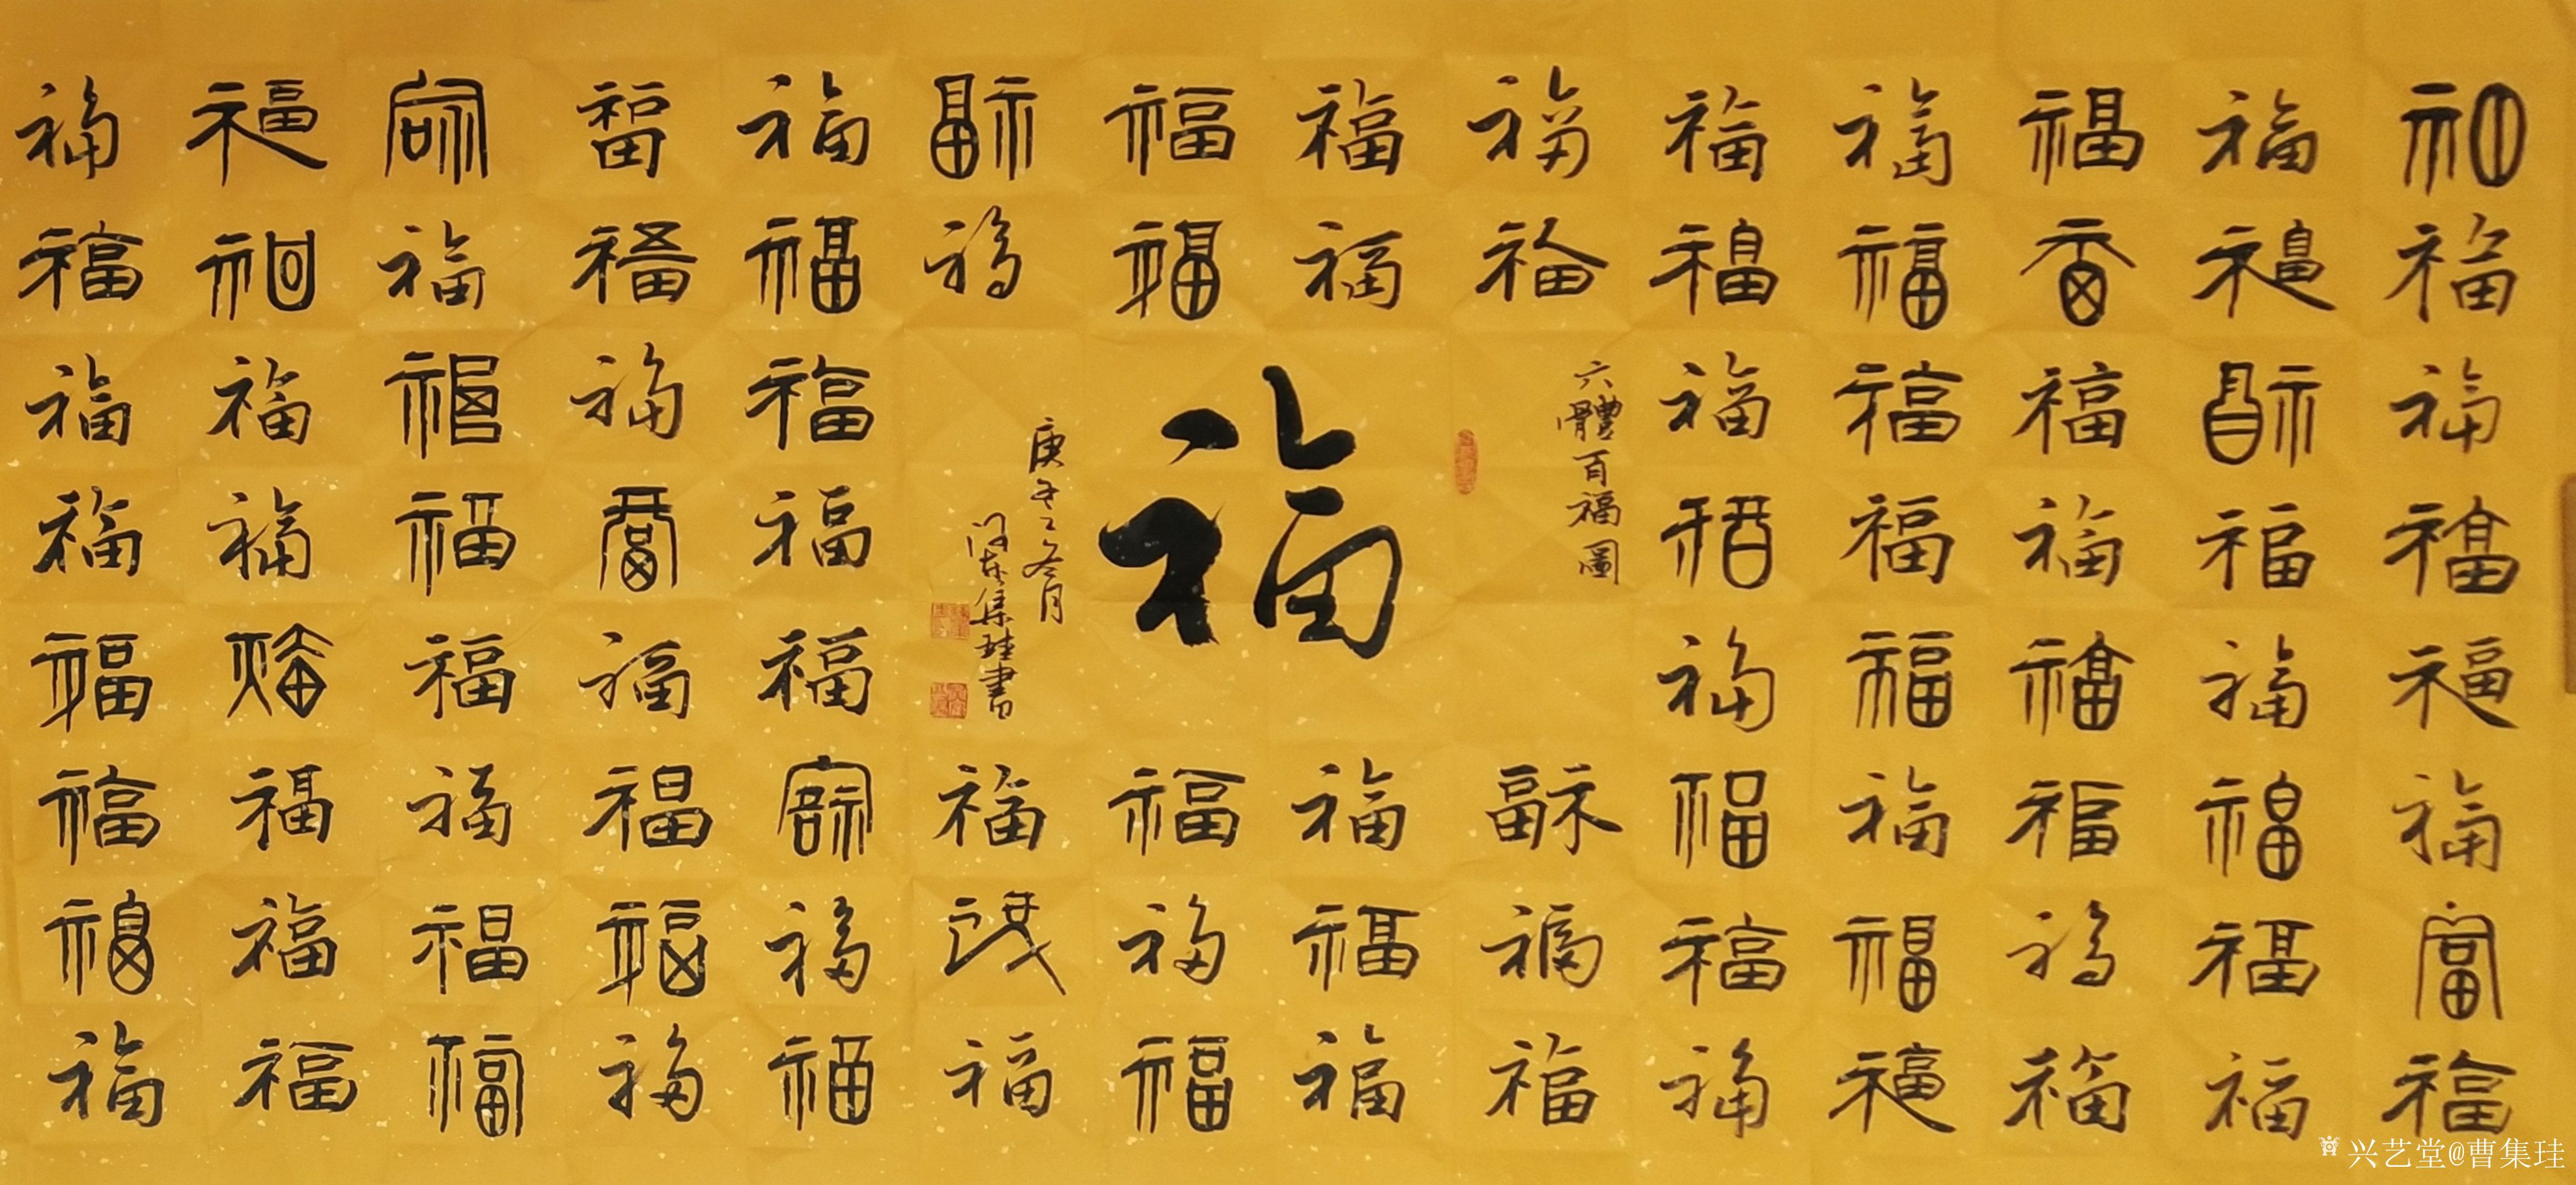 福福福福福福福福
福福福福福福福福
福福福福福福福福
福福福福福福福福
福福福福福福福福
福福福福福
福福福福福
福福福福福
福福福福福
六體百福圖
福
庚子之冬月
河東集珪書
福福福福福福福福
福福福福福福福福
福福福福福福福福
福福福福福福福福
福福福福福福福福
兴艺堂@曹集珪